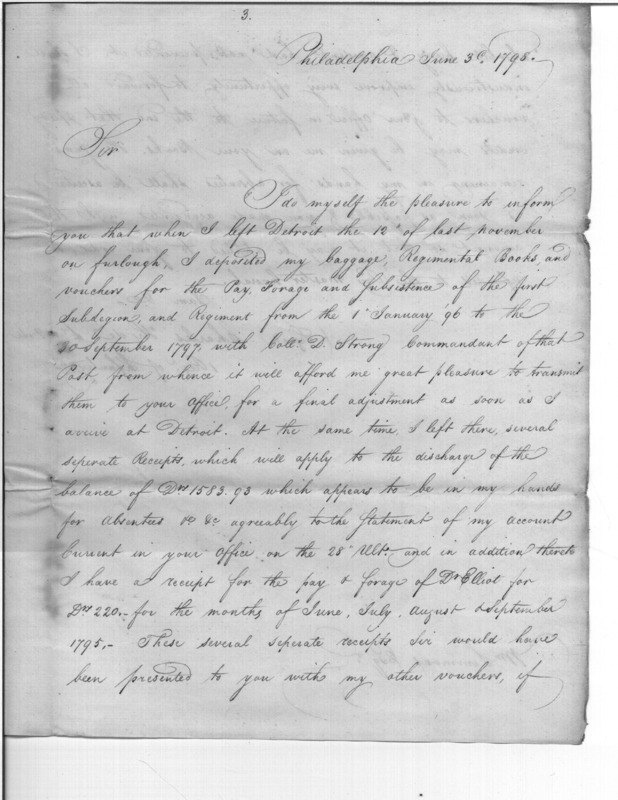 3.
Philadelphia June 3d. 1798.
Sir
I do myself the pleasure to inform
you that when I left Detroit the 12th of last november
on furlough, I deposited my baggage, Regimental Books, and
vouchers for the Pay, Forage and Subsistence of the first
Sublegion, and Regiment from the 1st January 96 to the
30 September 1797, with Coll. D. Strong Commandant of that
Post, from whence it will afford me great pleasure to transmit
them to your office, for a final adjustment as soon as I
arrive at Detroit. At the same time, I left there, several
seperate Receipts, which will apply to the discharge of the
balance of Drs 1583.93 which appears to be in my hands
for absentees &c &c agreeably to the Statement of my account
Current in your office on the 28 Ulto. and in addition thereto
I have a receipt for the pay & forage of Dr Elliot for
Drs 220.- for the months of June, July, August & September
1795,- These several seperate receipts Sir would have
been presented to you with my other vouchers, if